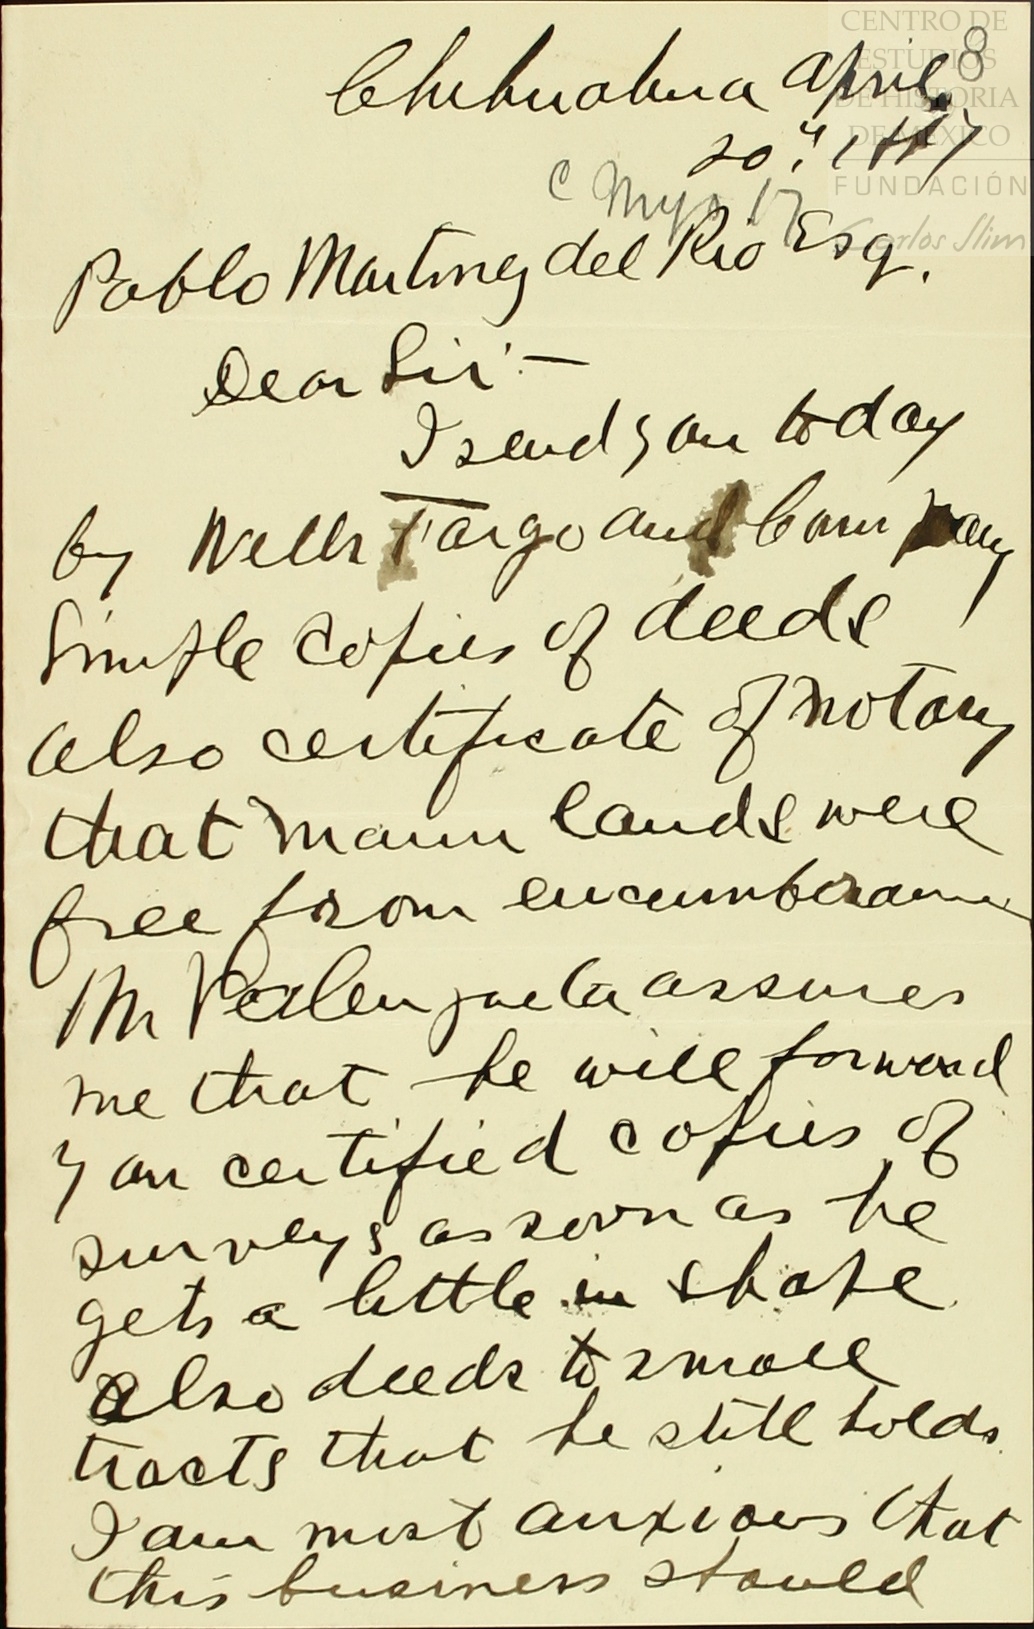 CENTRO DE
ESTUDIOS
DE HISTORIA
DE MÉXICO
FUNDACIÓN
Carlos Slim
8
Chihuahua April
20" 1887
C Myo 17
Pablo Martinez del Rio Esq.
Dear Sir:—
I send you today
by Wells Fargo and Company
simple copies of deeds
also certificate of notary
that main lands were
free from encumberance
Mr assures
me that he will forward
you certified copies of
surveys as soon as he
gets a little in shape
also deeds to small
tracts that he still holds
I am most anxious that
this business should